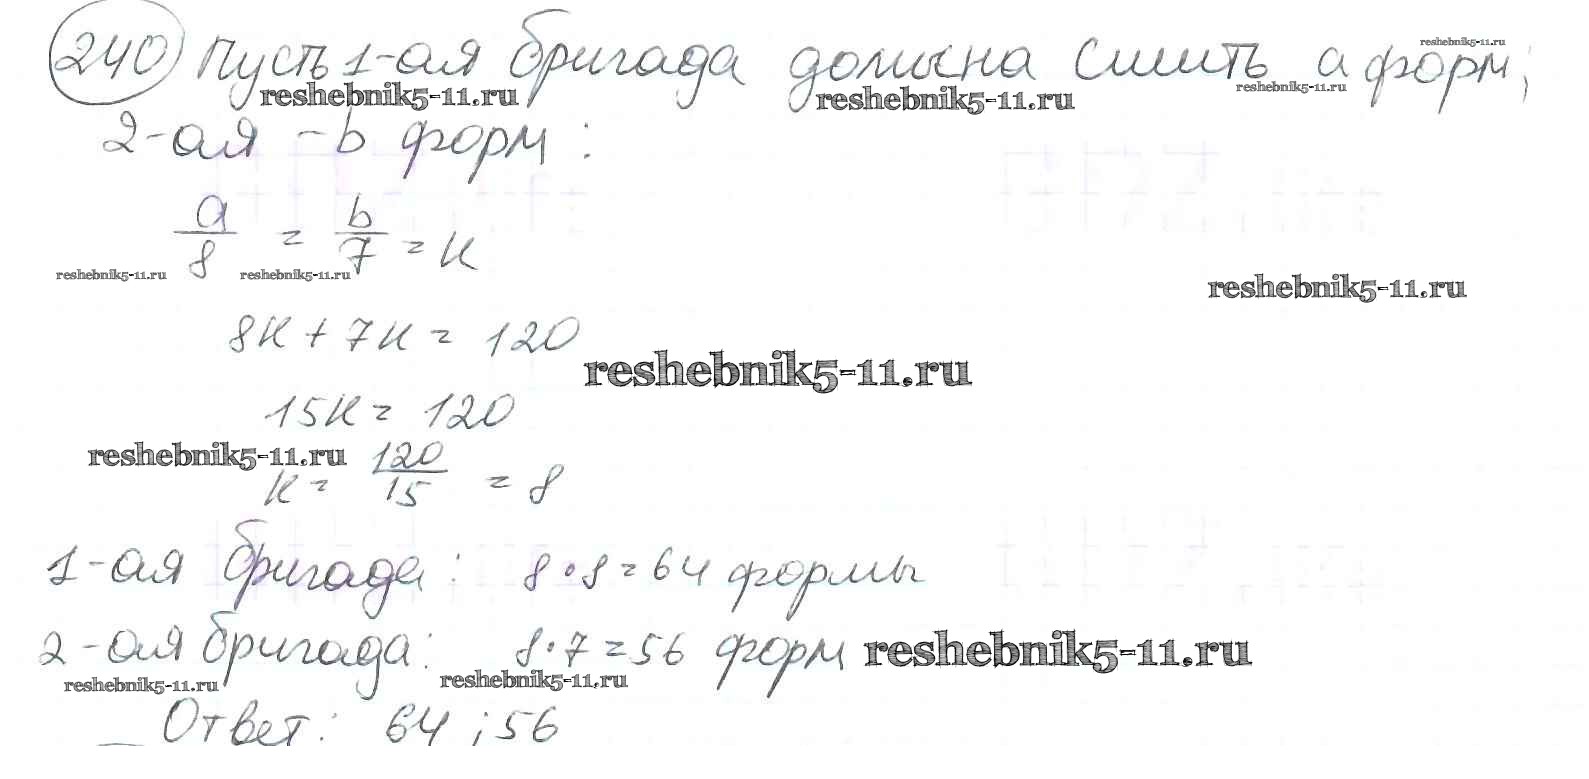 240 Пусть 1-ая бригада должна сшить a форм;
reshebnik5-11.ru
reshebnik5-11.ru
reshebnik5-11.ru
reshebnik5-11.ru
2-ая - b форм:
a/8 = b/7 = к
reshebnik5-11.ru
reshebnik5-11.ru
reshebnik5-11.ru
8к + 7к = 120
reshebnik5-11.ru
15к = 120
reshebnik5-11.ru
к = 120/15 = 8
1-ая бригада: 8 • 8 = 64 формы
2-ая бригада: 8 • 7 = 56 форм
reshebnik5-11.ru
reshebnik5-11.ru
reshebnik5-11.ru
Ответ: 64 ; 56